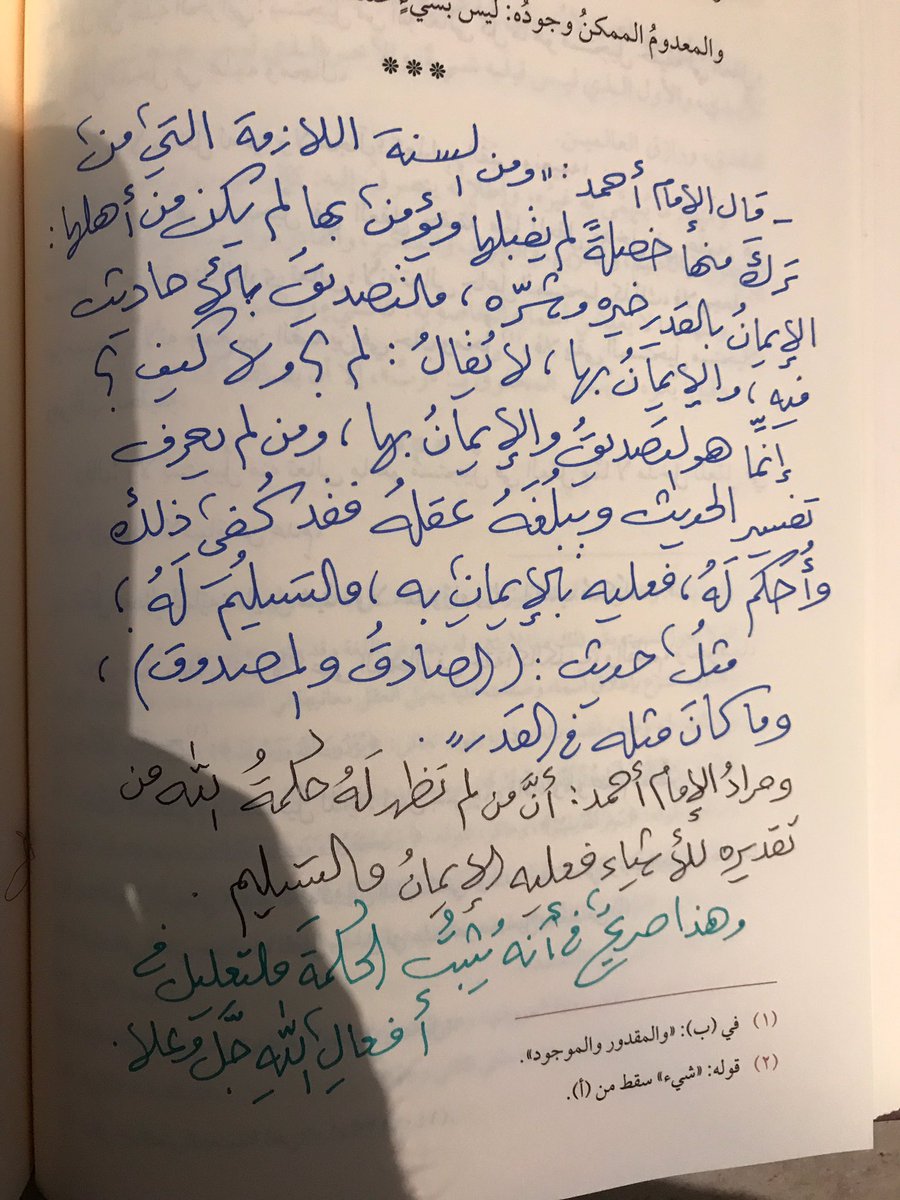 والمعدومُ الممكنُ وجودُه: ليس بشيءٍ
***
_ قال الإمام أحمد: "ومن السنة اللازمة التي من
تركَ منها خصلةً لم يقبلها ويؤمن بها لم يكن من أهلها:
الإيمانُ بالقدر خيره وشرّه، والتصديقُ بالأحاديث
فيه، والإيمانُ بها، لا يُقالُ: لم؟ ولا كيف؟
إنّما هو التصديقُ والإيمانُ بها، ومن لم يعرف
تفسير الحديث ويبلُغهُ عقلهُ فقد كُفي ذلك
وأُحكم لهُ، فعليه بالإيمان به، والتسليمُ لَهُ؛
مثلُ حديث: (الصادقُ والمصدوق)،
وما كانَ مثله في القدَر".
ومرادُ الإمام أحمد: أنَّ من لم تظهر لهُ حكمةُ اللّٰه من
تقديره للأشياء فعليه الإيمانُ والتسليم.
وهذا صريحٌ في أنه يُثبتُ الحكمةَ والتعليل في
أفعالِ اللّٰهِ جلَّ وعلا.
(١) في (ب): «والمقدور والموجود».
(٢) قوله: «شيء» سقط من (أ).